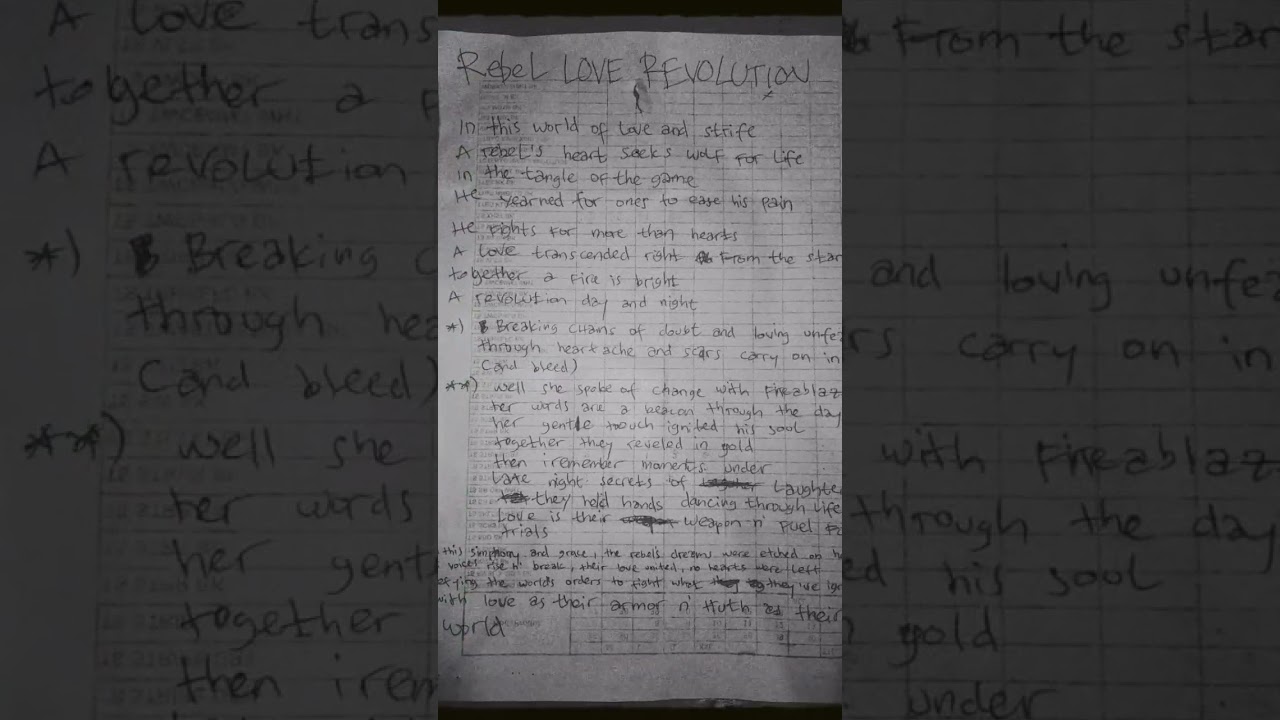 Rebel LOVE REVOLUTION
In this world of love and strife
A rebel's heart seeks wolf for life
in the tangle of the game
He yearned for ones to ease his pain
He fights for more than hearts
A Love transcended right From the star
together a fire is bright
A revolution day and night
*) Breaking chains of doubt and loving unfe
through heartache and scars carry on in
Cand bleed)
**) well she spoke of change with Fireablaz
her words are a beacon through the day
her gentle touch ignited his sool
together they reveled in gold
then iremember moments under
Late night secrets of Laughte
they held hands dancing through life
Love is their weapon n' fuel
trials
this simphony and grace, the rebels dreams were etched on
voices rise n' break, their love united, no hearts were left
the worlds orders to fight what they've
with love as their armor n' truth as their
world